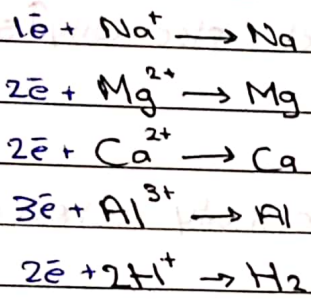 1ē + Na⁺ → Na
2ē + Mg²⁺ → Mg
2ē + Ca²⁺ → Ca
3ē + Al³⁺ → Al
2ē + 2H⁺ → H₂